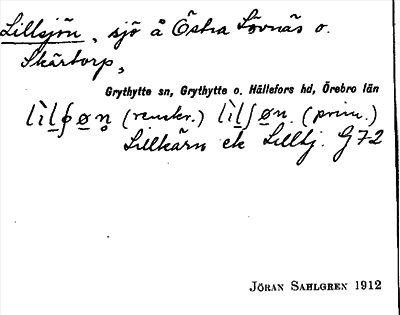 Lillsjön, sjö å Östra Sövnäs o.
Skärtorp,
Grythytte sn, Grythytte o. Hällefors hd, Örebro län
(renskr.) (prim.)
Lilltärn ek Lilltj. G72
JÖRAN SAHLGREN 1912